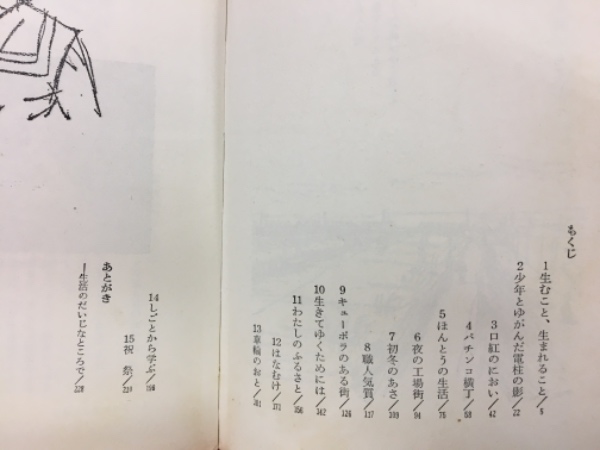 もくじ
1 生むこと、生まれること/8
2 少年とゆがんだ電柱の影/22
3 口紅のにおい/42
4 パチンコ横丁/58
5 ほんとうの生活/75
6 夜の工場街/94
7 初冬のあさ/109
8 職人気質/117
9 キューポラのある街/126
10 生きてゆくためには/142
11 わたしのふるさと/156
12 はなむけ/171
13 車輪のおと/181
14 しごとから学ぶ/198
15 祝祭/219
あとがき
―生活のだいじなところで/228